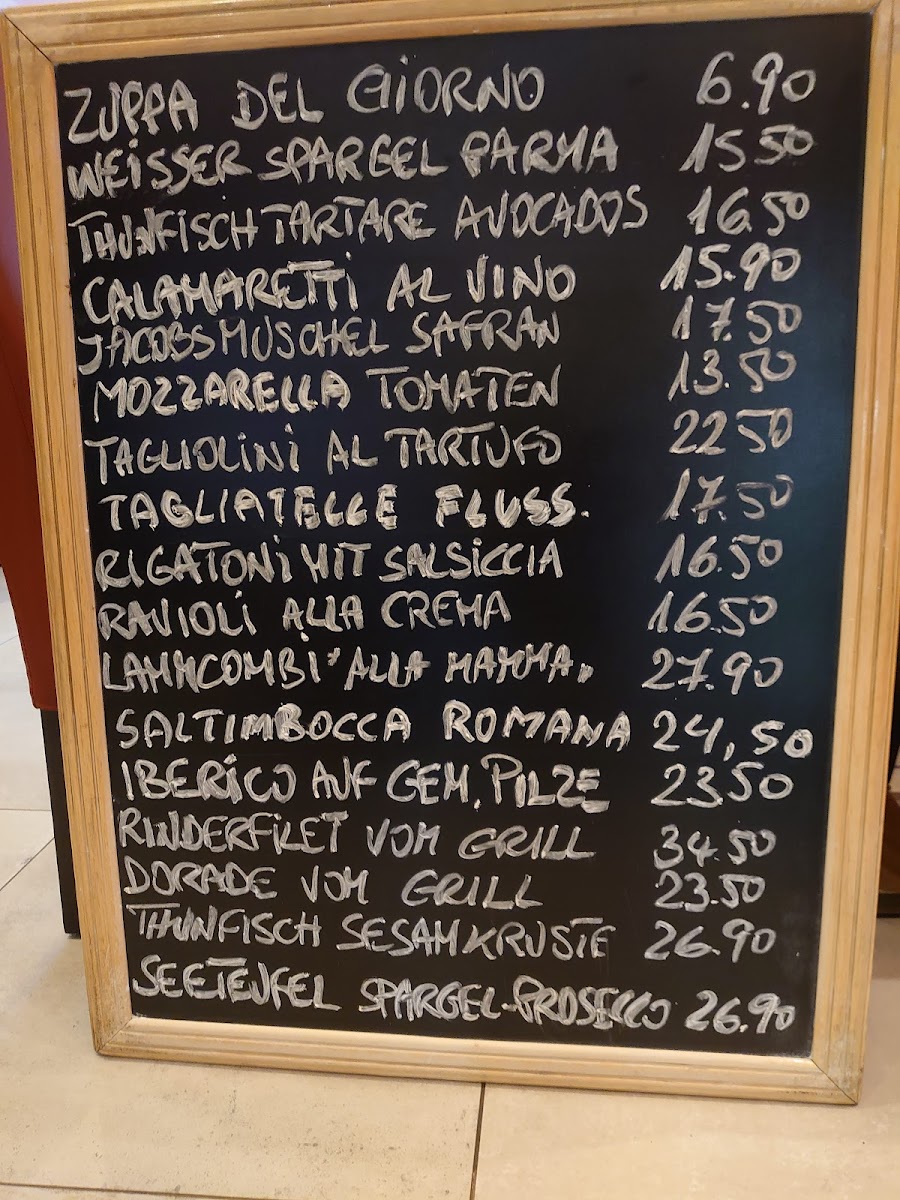 ZUPPA DEL GIORNO 6.90
WEISSER SPARGEL PARMA 15 50
THUNFISCH TARTARE AVOCADOS 16.50
CALAMARETTI AL VINO 15.90
JACOBSMUSCHEL SAFRAN 17.50
MOZZARELLA TOMATEN 13.50
TAGLIOLINI AL TARTUFO 22 50
TAGLIATELLE FLUSS. 17.50
RIGATONI MIT SALSICCIA 16.50
RAVIOLI ALLA CREMA 16.50
LAMMCOMBI "ALLA MAMMA" 27.90
SALTIMBOCCA ROMANA 24,50
IBERICO AUF GEM. PILZE 23.50
RINDERFILET VOM GRILL 34.50
DORADE VOM GRILL 23.50
THUNFISCH SESAMKRUSTE 26.90
SEETEUFEL SPARGEL-PROSECCO 26.90